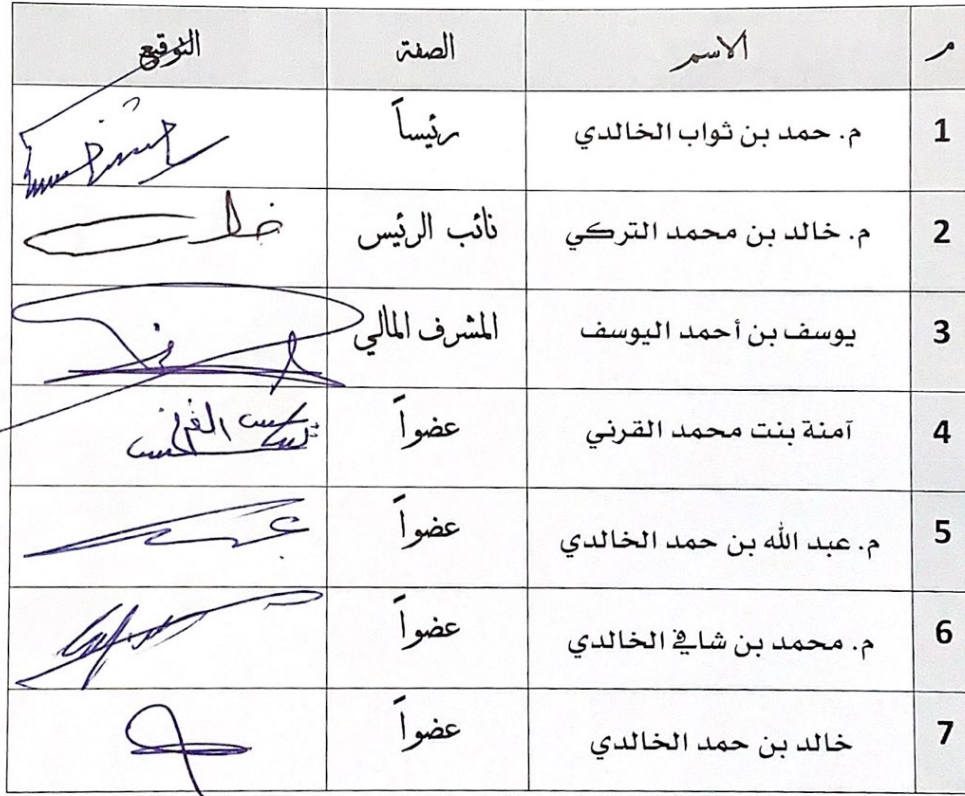 م الاسم الصفة التوقيع
1 م. حمد بن ثواب الخالدي رئيساً
2 م. خالد بن محمد التركي نائب الرئيس
3 يوسف بن أحمد اليوسف المشرف المالي
4 آمنة بنت محمد القرني عضواً
5 م. عبد الله بن حمد الخالدي عضواً
6 م. محمد بن شافي الخالدي عضواً
7 خالد بن حمد الخالدي عضواً